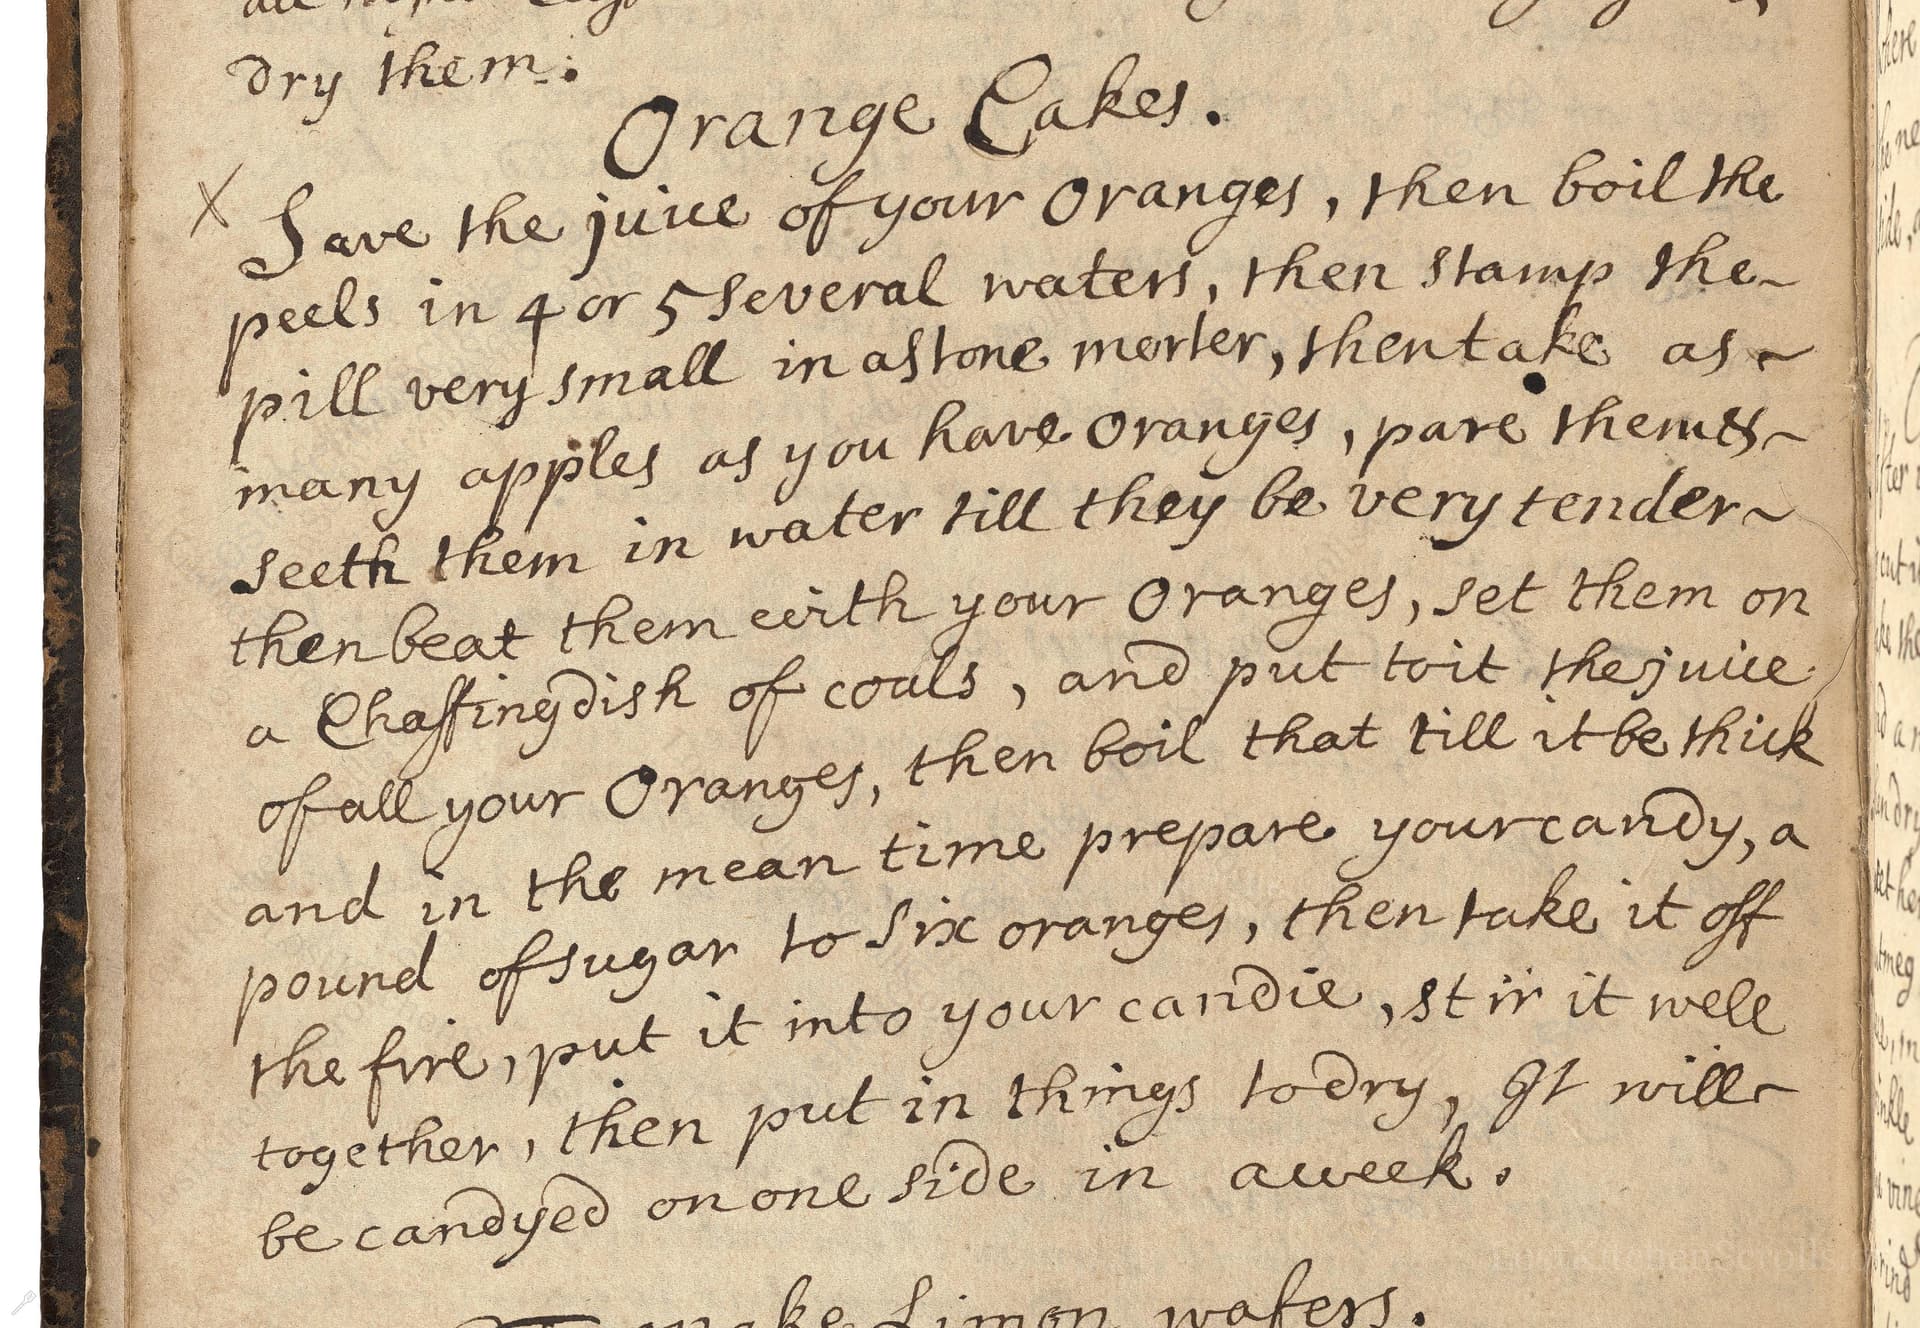 dry them.
Orange Cakes.
X Save the juice of your Oranges, then boil the
peels in 4 or 5 several waters, then stamp the~
pill very small in a stone morter, then take as~
many apples as you have Oranges, pare them &~
seeth them in water till they be very tender~
then beat them with your Oranges, set them on
a Chaffingdish of coals, and put to it the juice
of all your Oranges, then boil that till it be thick
and in the mean time prepare your candy, a
pound of sugar to six oranges, then take it off
the fire, put it into your candie, stir it well
together, then put in things to dry, It will~
be candyed on one side in a week.
To make Limon wafers.
LostKitchenScrolls